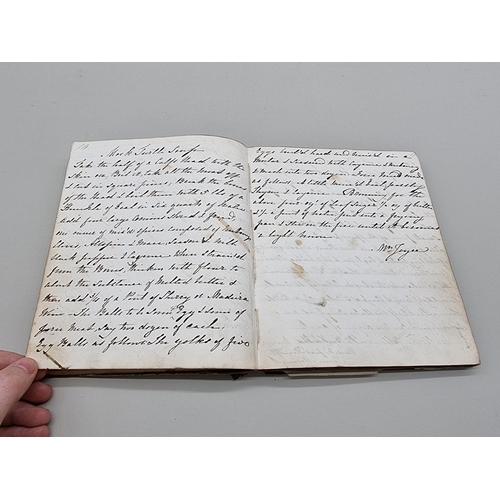 Mock Turtle Soup
Take the half of a Calfs Head with the
Skin on, Boil it, take all the meat off
& cut in square pieces, Break the bones
of the Head & boil them with 5 lbs of a
Knuckle of Veal in Six quarts of water
add five large onions
one ounce of mixed spices composed of
Cloves, Allspice & Mace Season it with
black pepper & Cayenne When Strained
from the Bones, thicken with flour to
about the Substance of Melted butter &
then add ½ of a Pint of Sherry or Madeira
Wine The Balls to be Egg & some of
force Meat Say two dozen of each.
Egg Balls as follows The yolks of five
Eggs boil'd hard and bruised in a
Mortar & Seasoned with Cayenne & nutmeg
as follows, A little minced
Thyme & Cayenne Browning for the
above put oz of Loaf Sugar oz of butter
of water put into a frying
pan & Stir on the fire until it becomes
a light brown
Mrs Joyce